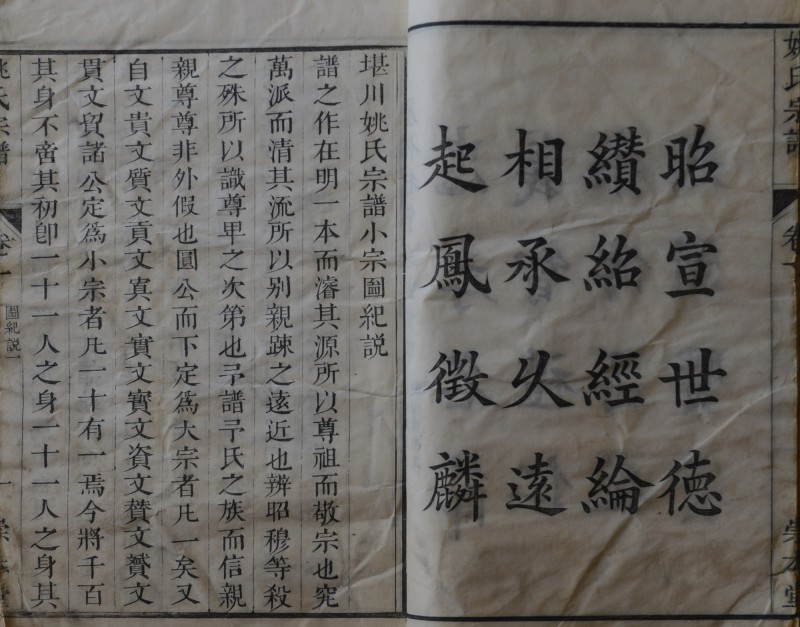 姚氏宗譜
卷一
崇本堂
昭宣世德
纘紹經綸
相承久遠
起鳳徵麟
堪川姚氏宗譜小宗圖紀説
譜之作在明一本而濬其源所以尊祖而敬宗也究
萬派而清其流所以别親踈之遠近也辨昭穆等殺
之殊所以識尊卑之次第也予譜予氏之族而信親
親尊尊非外假也圓公而下定爲大宗者凡一矣又
自文貴文質文貢文寘文實文寳文資文贊文贇文
貫文貿諸公定爲小宗者凡一十有一焉今將千百
其身不啻其初卽一十一人之身一十一人之身其
姚氏宗譜
卷一
圖紀説
一
崇本堂